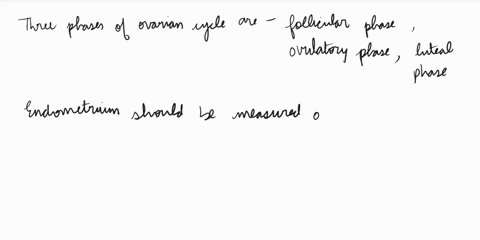 Three phases of ovarian cycle are - follicular phase ,
ovulatory phase, luteal
phase
Endometrium should be measured o